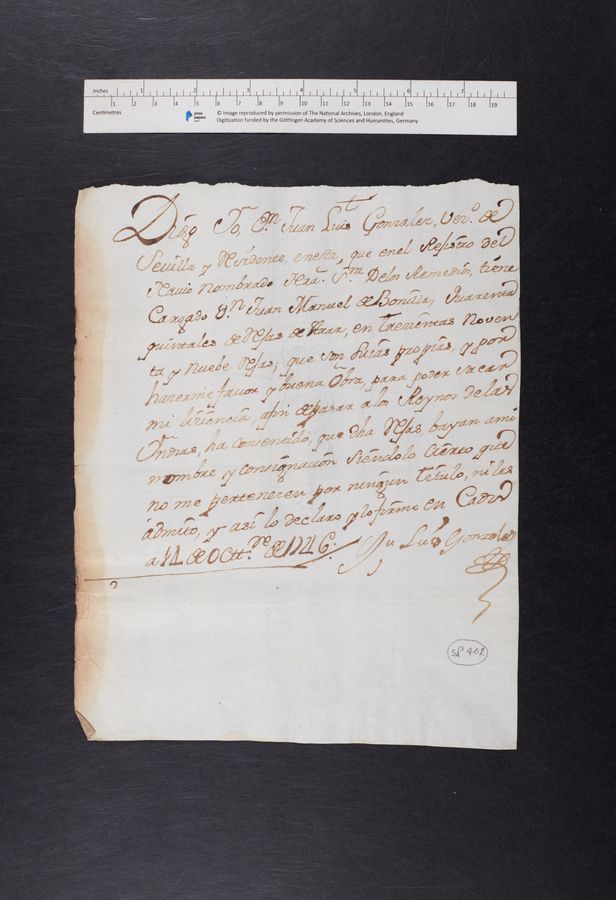 Inches 1 2 3 4 5 6 7
1 2 3 4 5 6 7 8 9 10 11 12 13 14 15 16 17 18 19
Centimetres
prize papers
© Image reproduced by permission of The National Archives, London, England
Digitization funded by the Göttingen Academy of Sciences and Humanities, Germany
Digo Yo, Dn Juan Luis Gonzalez, Vez.o de
Sevilla y Residente, enesta, que enel Rexistro del
Navio nombrado Nra. Sra. Delos Remedios, tiene
Cargado Dn Juan Manuel de Bonilla, Quarenta
quintales de Rejas de Arar, en trezientas Noven
ta y nueve Rejas; que son Suias propias, y por
hazerme favor y buena Obra, para poder sacar
mi lizencia, afin de pasar a los Reynos de las
Yndias, ha consentido, que dha Rejas, bayan ami
nombre y consignacion siendolo cierto, que
no me pertenezen por ningun titulo, ni las
admito, y asi lo declaro y lo firmo en Cadiz
a 14 de Octt.re de 1746.
Ju Luis Gonzalez
SP 402